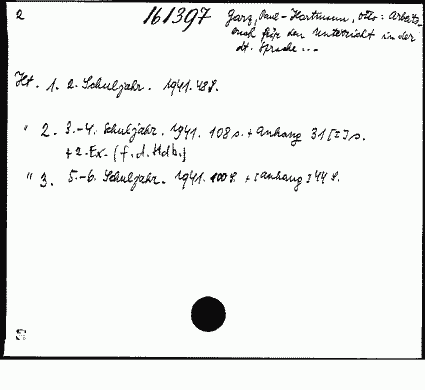 2 161397 Garz, Paul - Hartmann, Otto: Arbeits-
buch für den Unterricht in der
dt. Sprache...
Ht. 1. 2. Schuljahr. 1941. 48 S.
" 2. 3.-4. Schuljahr. 1941. 108 S. + Anhang 31 [I] S.
+ 2. Ex. (f. d. Hdb.)
" 3. 5.-6. Schuljahr. 1941. 100 S. + [Anhang] 44 S.